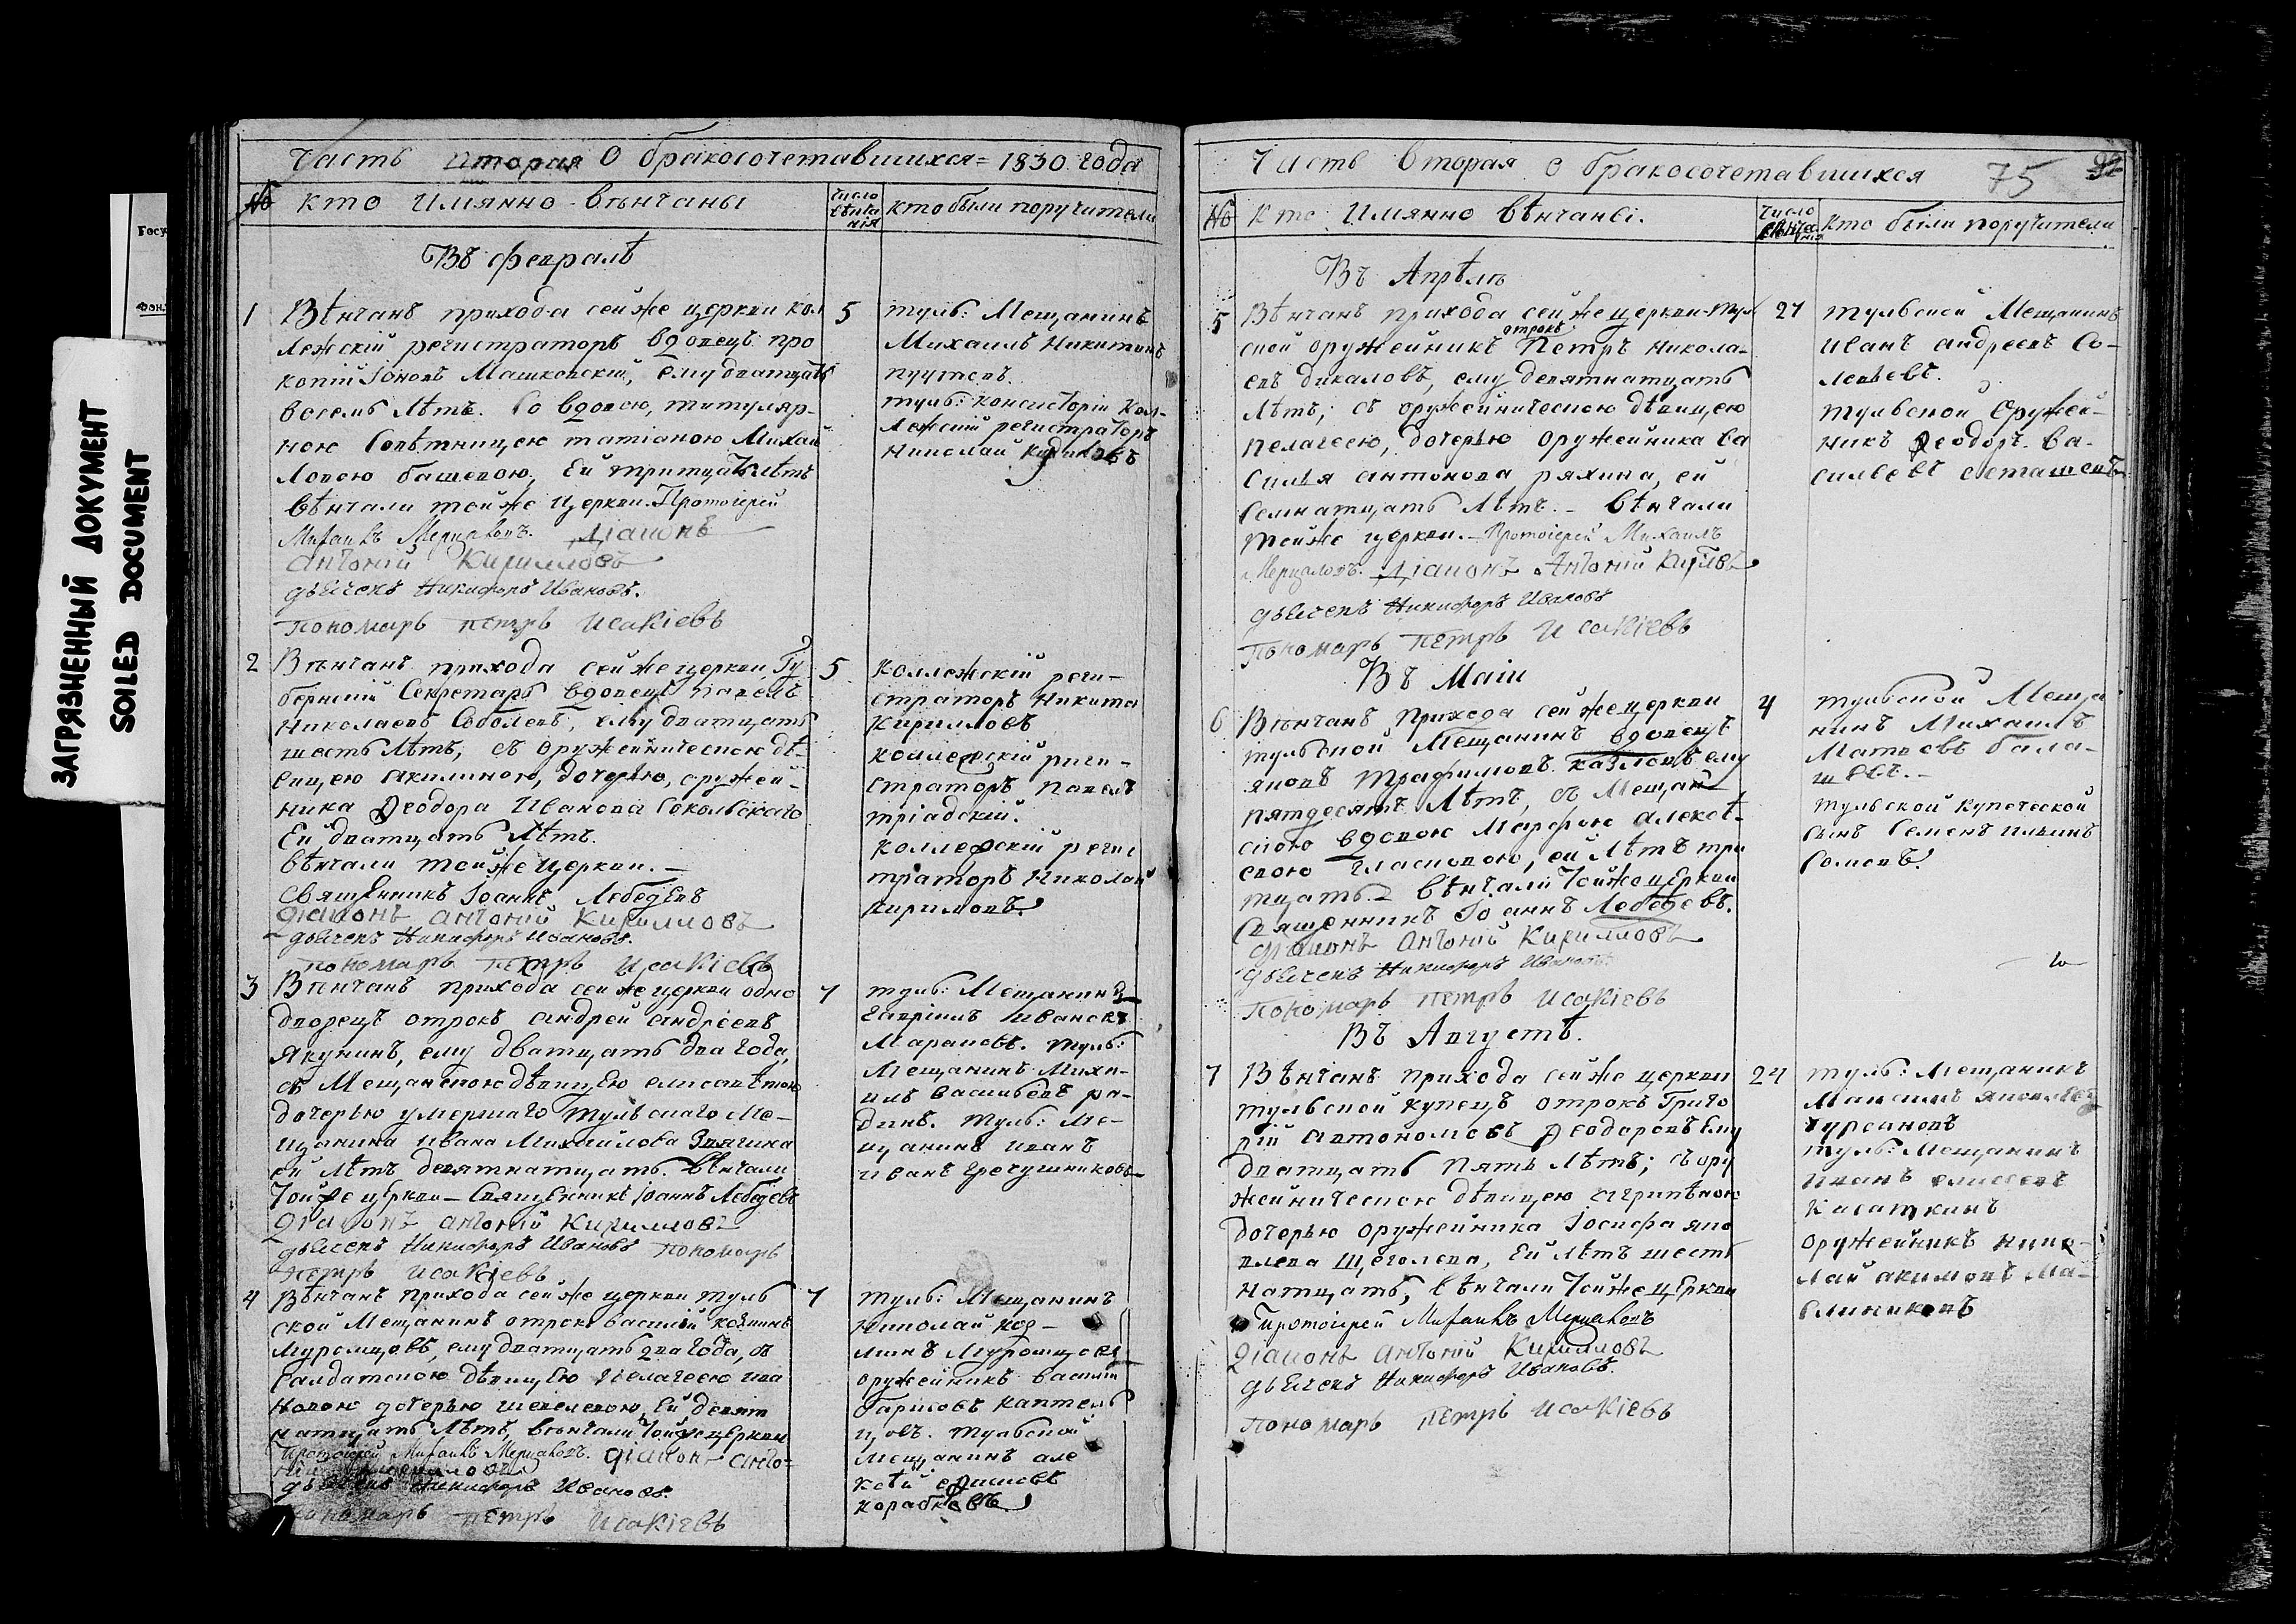 ЗАГРЯЗНЕННЫЙ ДОКУМЕНТ
SOILED DOCUMENT
Часть вторая О бракосочетавшихся = 1830 года
№ кто имянно вѣнчаны
число вѣнчанія
кто были поручители
Въ февралѣ
1 Вѣнчанъ прихода сей же церкви кол
лежскій регистраторъ вдовецъ про
копій Іоновъ Машковскій, ему дватцать
восемь лѣтъ. Со вдовою, титуляр-
ною совѣтницею татіаною Михай
ловою башевою, Ей тритцать лѣтъ
вѣнчали тойже церкви. Протоіерей
Михаилъ Мерцаловъ. Діаконъ
Антоній Кирилловъ
дьячекъ Никифоръ Ивановъ.
Пономарь петръ Исакіевъ
5
туль: Мещанинъ
Михаилъ Никитинъ
пуутевъ.
туль: консисторіи кол-
лежскій регистраторъ
Николай
2 Вѣнчанъ прихода сей же церкви, Гу
бернскій Секретарь вдовецъ павелъ
Николаевъ Соболевъ, ему дватцать
шесть лѣтъ, съ оружейническою дѣ-
вицею акилиною, дочерью, оружей-
ника Ѳеодора Иванова Сокольскаго
Ей дватцать лѣтъ.
вѣнчали тойже церкви. –
священникъ Іоаннъ Лебедевъ
діаконъ антоній Кирилловъ
дьячекъ Никифоръ Ивановъ.
пономарь петръ Исакіевъ
5
коллежскій реги-
страторъ Никита
Кирилловъ
коллежскій риги-
страторъ павелъ
тріадскій.
коллежскій регис
траторъ Николай
кириловъ
3 Вѣнчанъ прихода сей же церкви одно
дворецъ отрокъ андрей андреевъ
Якунинъ, ему дватцать два года,
съ Мещанскою дѣвицею елисаветою
дочерью умершаго тульскаго Ме-
щанина ивана Михайлова Звягина
ей лѣтъ девятнатцать. вѣнчали
тойже церкви – Священникъ Іоаннъ Лебедевъ
діаконъ антоній Кирилловъ
дьячекъ Никифоръ Ивановъ пономарь
петръ Исакіевъ
7
туль: Мещанинъ
Гавріилъ Ивановъ
Маракевъ. туль:
Мещанинъ Миха-
илъ васильевъ ра-
динъ. туль: Ме-
щанинъ иванъ
Ивановъ Гречушниковъ
4 Вѣнчанъ прихода сей же церкви туль
ской Мещанинъ отрокъ василій козминъ
Муромцовъ, ему дватцать два года, съ
салдатскою дѣвицею Пелагеею ива
новою дочерью шевелевою, Ей девят
натцать лѣтъ, вѣнчали тойже церкви
Протоіерей Михаилъ Мерцаловъ. діаконъ анто-
ній Кирилловъ
дьячекъ Никифоръ Ивановъ.
пономарь петръ Исакіевъ
7
туль: Мещанинъ
Николай
Муромцовъ
оружейникъ василій
Гарисовъ каптель
цовъ. тульской
мещанинъ але
ксѣй
коработковъ
Часть вторая о бракосочетавшихся 75
№ кто имянно вѣнчаны.
число вѣнчанія
кто были поручители
Въ Апрѣлѣ
5 Вѣнчанъ прихода сей же церкви туль
ской оружейникъ отрокъ Петръ никола-
евъ дикаловъ, ему девятнатцать
лѣтъ; съ оружейническою дѣвицею
пелагеею, дочерью оружейника ва
силья антонова ряхина, ей
семнатцать лѣтъ. – вѣнчали
тойже церкви. – Протоіерей Михаилъ
Мерцаловъ. Діаконъ Антоній Кириловъ
дьячекъ Никифоръ Ивановъ
Пономарь петръ Исакіевъ
27
тульской Мещанинъ
иванъ андреевъ Со-
ловьевъ.
тульской Оружей-
никъ Ѳеодоръ ва-
сильевъ асташевъ
Въ Маіи
6 Вѣнчанъ прихода сей же церкви
тульской Мещанинъ вдовецъ
яковъ Трафимовъ казловъ ему
пятдесятъ лѣтъ, съ Мещан
скою вдовою Марфою алексѣ-
евою Гласковою, ей лѣтъ три
тцать. вѣнчали тойже церкви
Священникъ Іоаннъ Лебедевъ.
діаконъ Антоній Кирилловъ
дьячекъ Никифоръ Ивановъ.
пономарь петръ Исакіевъ
4
тульской Меща
нинъ Михаилъ
Матвѣевъ бала-
шевъ. –
тульской купеческой
сынъ Семенъ ильинъ
Сомовъ.
Въ Августѣ.
7 Вѣнчанъ прихода сей же церкви
тульской купецъ отрокъ Григо
рій автономовъ Ѳеодоровъ ему
дватцать пять лѣтъ; съ ору
жейническою дѣвицею агрипѣною
дочерью оружейника Іосифа яко
влева Щеголева, Ей лѣтъ шест
натцать, вѣнчали тойже церкви
протоіерей Михаилъ Мерцаловъ
діаконъ антоній Кирилловъ
дьячекъ Никифоръ Ивановъ.
пономарь петръ Исакіевъ
24
туль: Мещанинъ
Максимъ яковлевъ
туль: Мещанинъ
иванъ елисеевъ
Касаткинъ
оружейникъ нико-
лай акимовъ Ма-
слниковъ